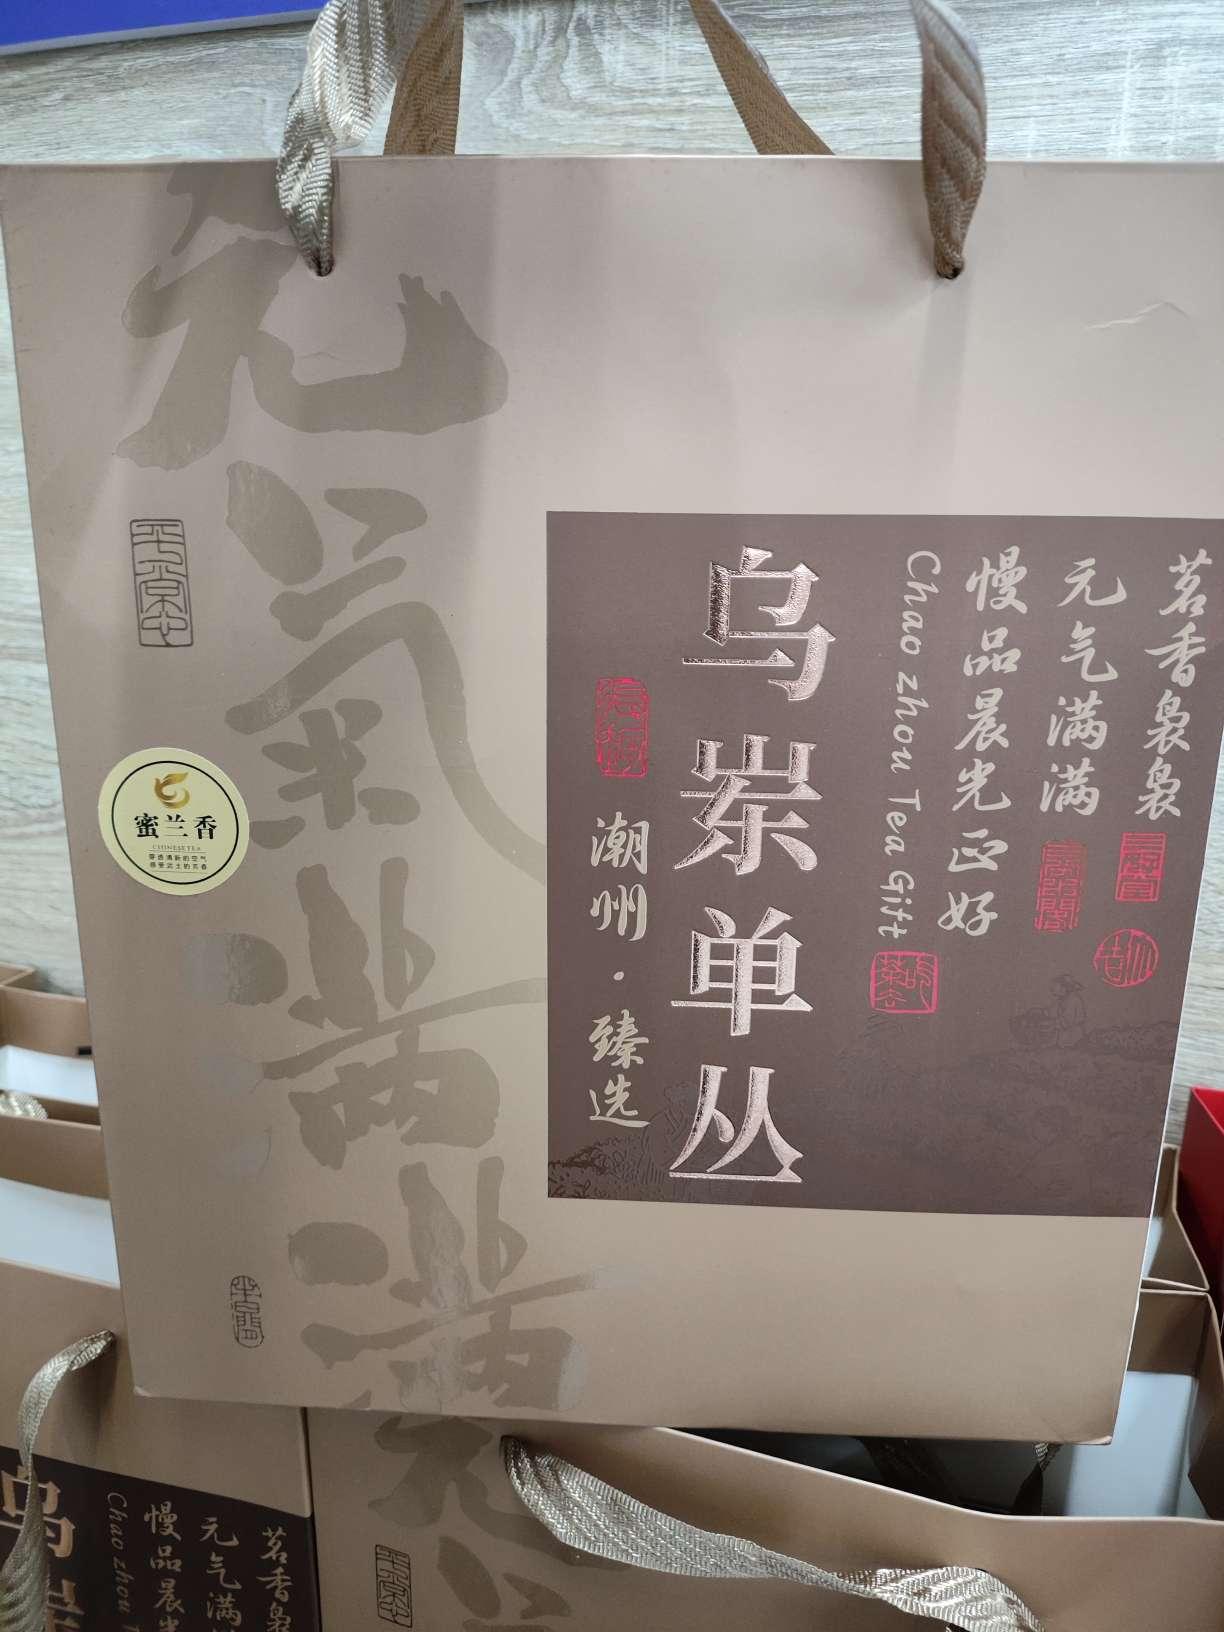 元氣滿滿
茗香袅袅
元气满满
慢品晨光正好
Chao zhou Tea Gift
乌岽单丛
潮州·臻选
蜜兰香
CHINESE TEA
元
慢品晨光
元气满
茗香袅
Chao zhou T